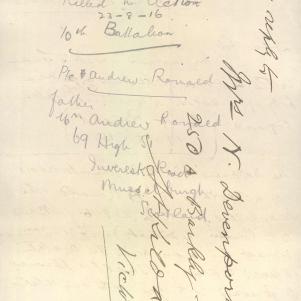 Killed in Action
22-8-16
10th Battalion
Pte Andrew Ronald
father
Andrew Ronald
69 High St
Inveresk Road
Musselburgh
Scotland
reply to
Mrs N. Devenport
250 A Barkly
St Kilda
Vict